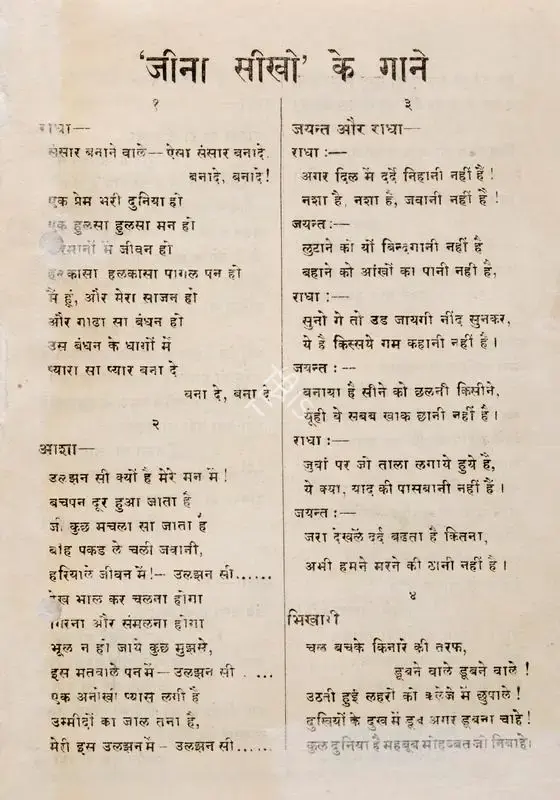 'जीना सीखो' के गाने
१
राधा—
संसार बनाने वाले— ऐसा संसार बनादे.
बनादे, बनादे!
एक प्रेम भरी दुनिया हो
एक हुलसा हुलसा मन हो
में जीवन हो
हलकासा हलकासा पागल पन हो
मैं हूं, और मेरा साजन हो
और गाढा सा बंधन हो
उस बंधन के धागों में
प्यारा सा प्यार बना दे
बना दे, बना दे
२
आशा—
उलझन सी क्यों है मेरे मन में !
बचपन दूर हुआ जाता है
जी कुछ मचला सा जाता है
बांह पकड ले चली जवानी,
हरियाले जीवन में!— उलझन सी......
देख भाल कर चलना होगा
गिरना और संमलना होगा
भूल न हो जाये कुछ मुझसे,
इस मतवाले पनमें— उलझन सी . ...
एक अनोखी प्यास लगी है
उम्मीदों का जाल तना है,
मेरी इस उलझनमें – उलझन सी......
३
जयन्त और राधा—
राधा :—
अगर दिल में दर्दे निहानी नहीं है !
नशा है, नशा है, जवानी नहीं है !
जयन्त:—
लुटाने को यों ज़िन्दगानी नहीं है
बहाने को आंखों का पानी नही है,
राधा :—
सुनो गे तो उड जायगी नींद सुनकर,
ये है किस्सये गम कहानी नहीं है ।
जयन्त : --
बनाया है सीने को छलनी किसीने,
यूंही वे सबब खाक छानी नहीं है ।
राधा :—
जुवां पर जो ताला लगाये हुये है,
ये क्या, याद की पासबानी नहीं है ।
जयन्त :—
जरा देखलें दर्द बढता है कितना,
अभी हमने मरने की ठानी नहीं है ।
४
भिखारी
चल बचके किनारे की तरफ,
डूबने वाले डूबने वाले !
उठती हुई लहरों को कलेजे में छुपाले !
दुखियों के दुख में डूब अगर डूबना चाहे !
कुल दुनिया है महबूब मोहब्बत जो निबाहे।